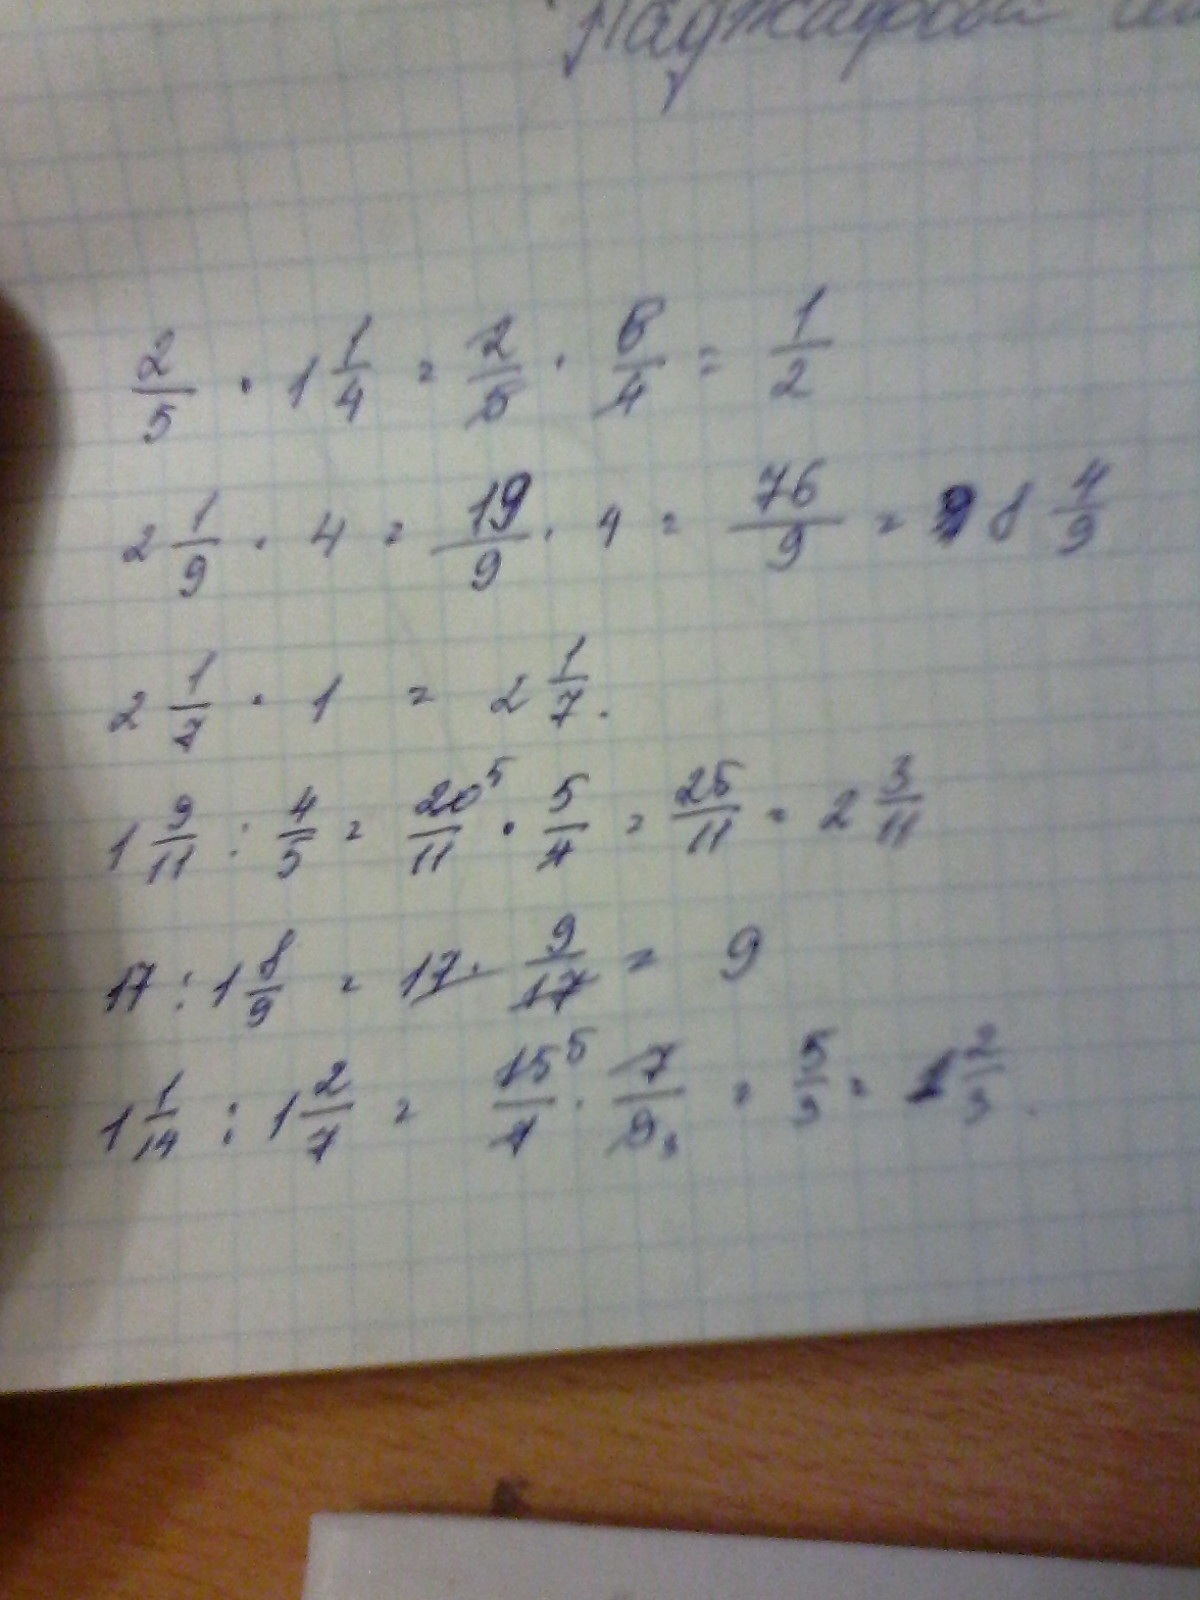 2/5 · 1 1/4 = 2/5 · 5/4 = 1/2
2 1/9 · 4 = 19/9 · 4 = 76/9 = 8 4/9
2 1/7 · 1 = 2 1/7.
1 9/11 : 4/5 = 20⁵/11 · 5/4 = 25/11 = 2 3/11
17 : 1 8/9 = 17 · 9/17 = 9
1 1/14 : 1 2/7 = 15⁵/7 · 7/9₃ = 5/3 = 1 2/3.